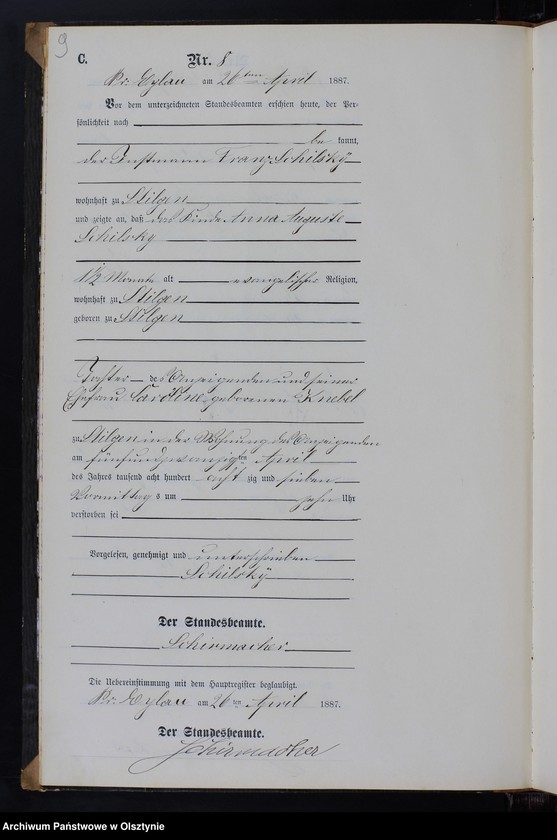 9
C.
Nr. 8
Pr. Eylau am 26ten April 1887.
Vor dem unterzeichneten Standesbeamten erschien heute, der Per-
sönlichkeit nach
be kannt,
der Instmann Franz Schilsky
wohnhaft zu Stilgen
und zeigte an, daß das Kind Anna Auguste
Schilsky
1½ Monate alt evangelischer Religion,
wohnhaft zu Stilgen
geboren zu Stilgen
Tochter des Anzeigenden und seiner
Ehefrau Caroline geborenen Knebel
zu Stilgen in der Wohnung des Anzeigenden
am fünfundzwanzigten April
des Jahres tausend acht hundert acht zig und sieben
Vormittag s um zehn Uhr
verstorben sei
Vorgelesen, genehmigt und unterschrieben
Schilsky
Der Standesbeamte.
Schirmacher
Die Uebereinstimmung mit dem Hauptregister beglaubigt.
Pr. Eylau am 26ten April 1887.
Der Standesbeamte.
Schirmacher
Archiwum Państwowe w Olsztynie